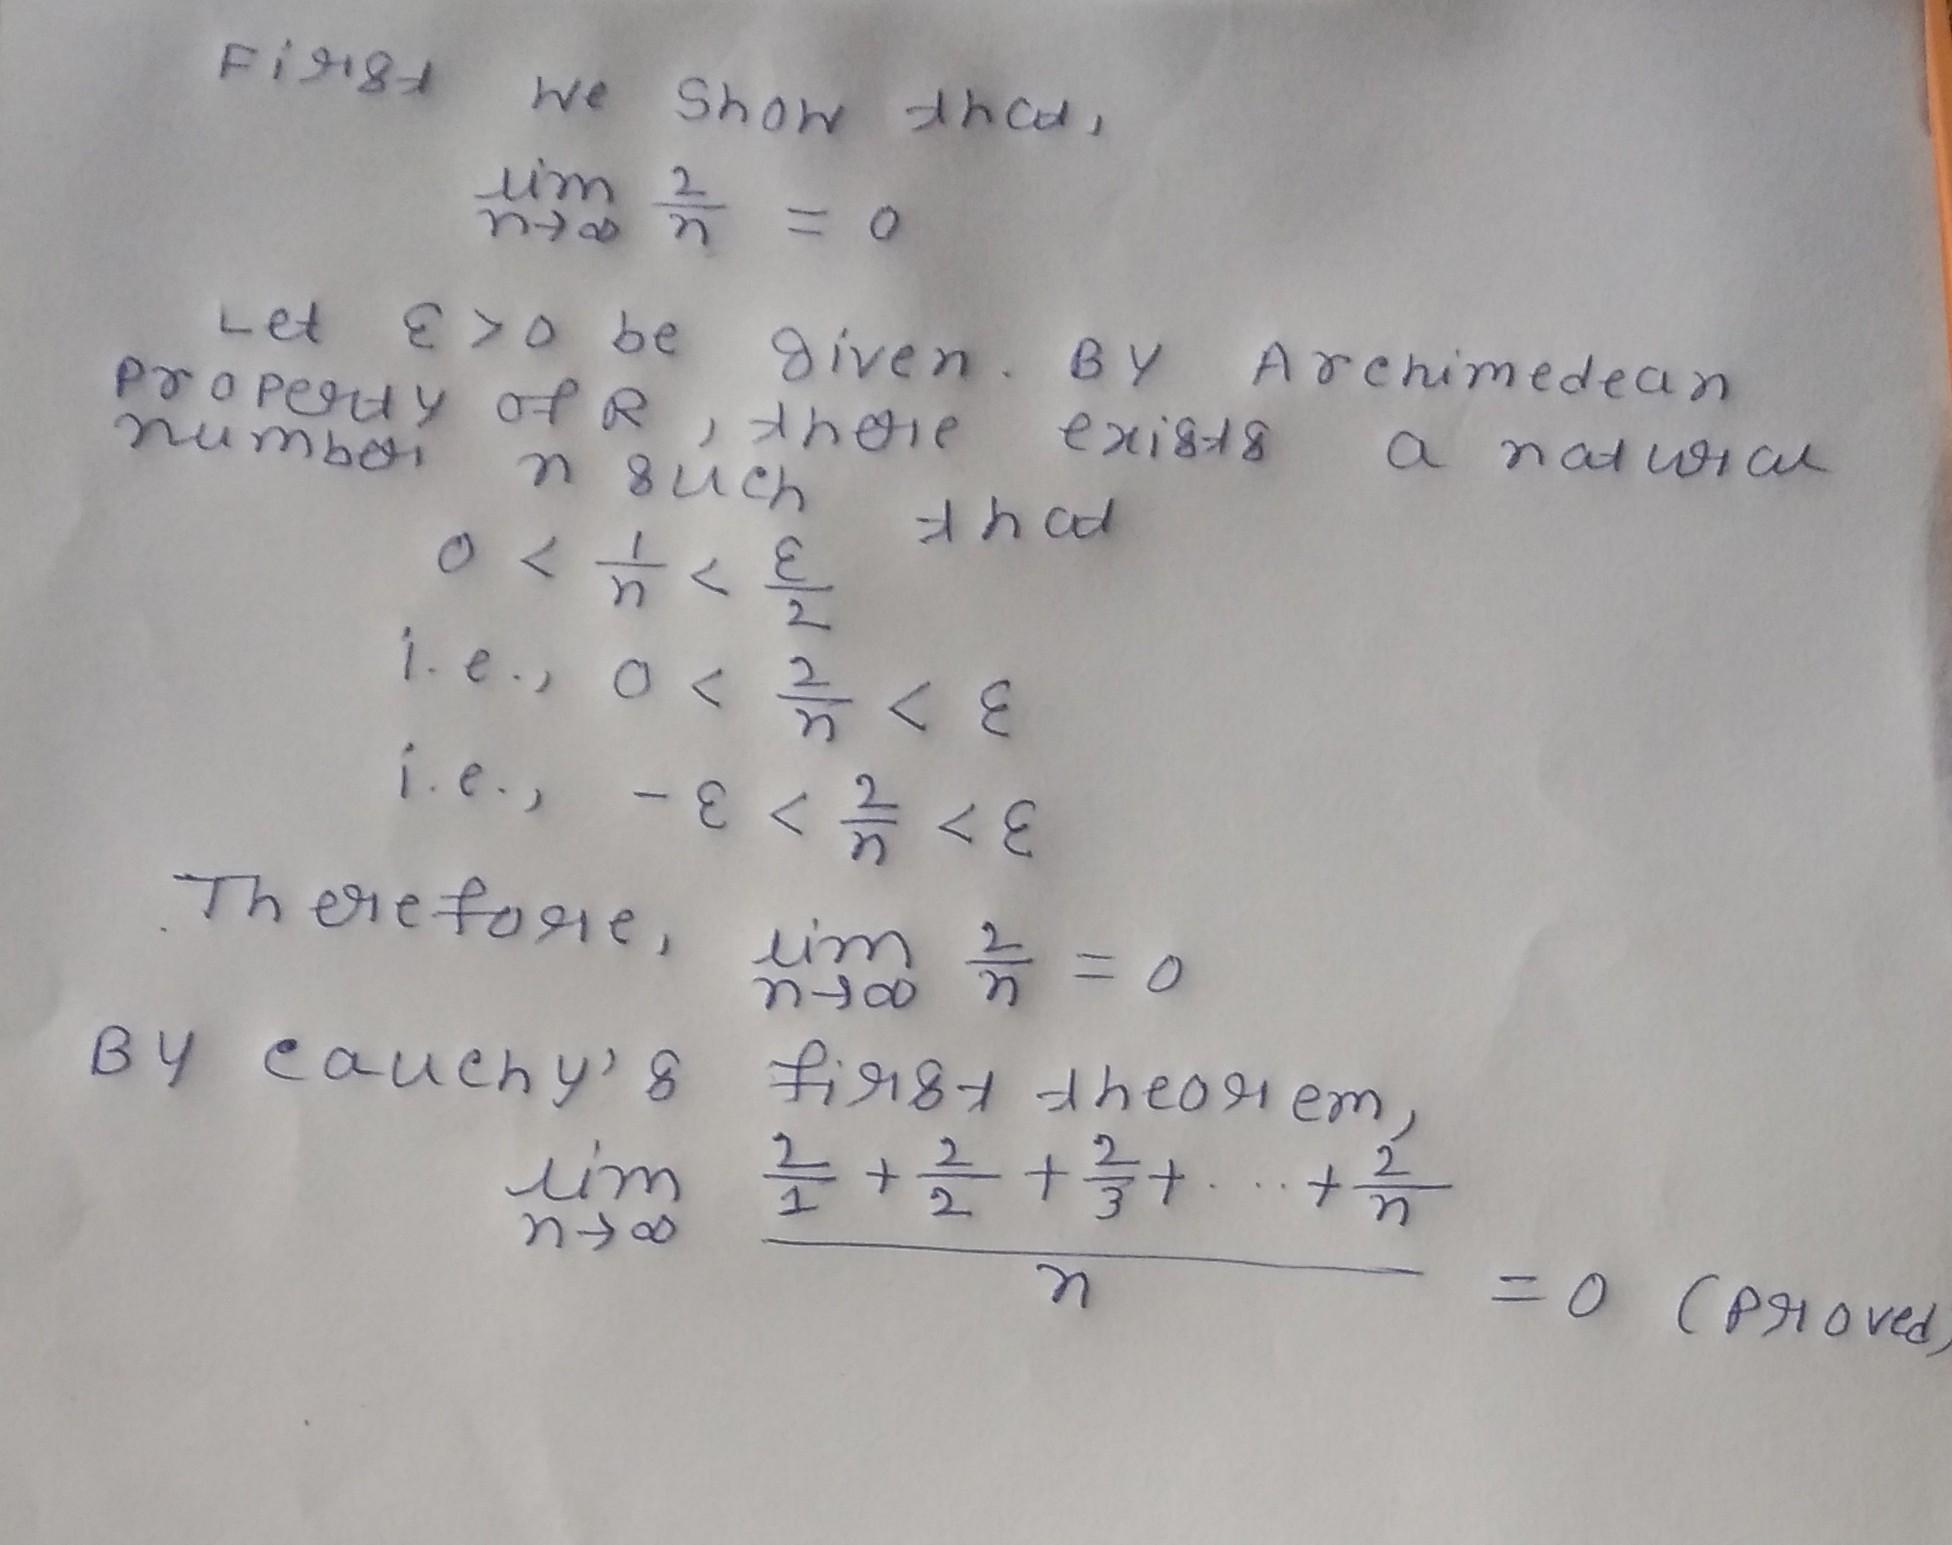 First we show that,
lim n→∞ 2/n = 0
Let ε > 0 be given. By Archimedean
property of R, there exists a natural
number n such that
0 < 1/n < ε/2
i.e., 0 < 2/n < ε
i.e., -ε < 2/n < ε
Therefore, lim n→∞ 2/n = 0
By Cauchy's first theorem,
lim n→∞ (2/1 + 2/2 + 2/3 + ..... + 2/n)/n = 0 (proved)